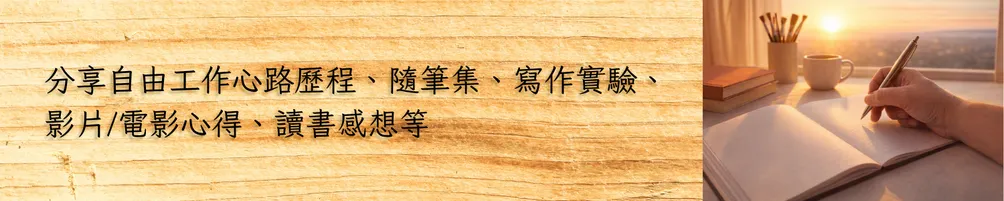 分享自由工作心路歷程、隨筆集、寫作實驗、
影片/電影心得、讀書感想等